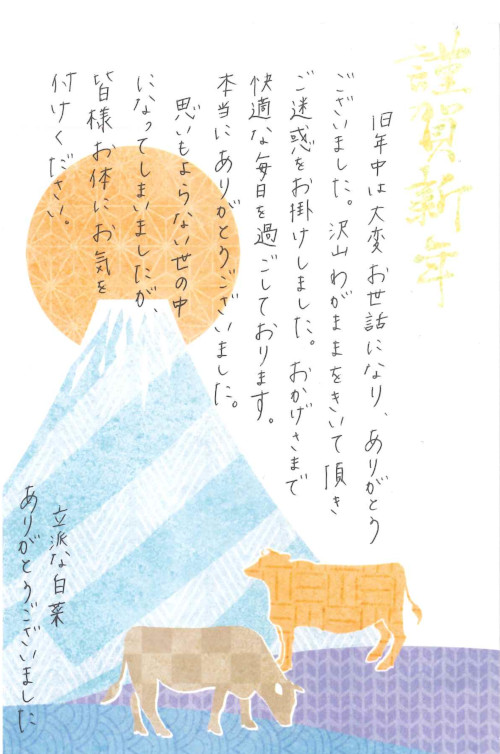 謹賀新年
旧年中は大変お世話になり、ありがとう
ございました。沢山わがままをきいて頂き
ご迷惑をお掛けしました。おかげさまで
快適な毎日を過ごしております。
本当にありがとうございました。
思いもよらない世の中
になってしまいましたが、
皆様お体にお気を
付けください。
立派な白菜
ありがとうございました